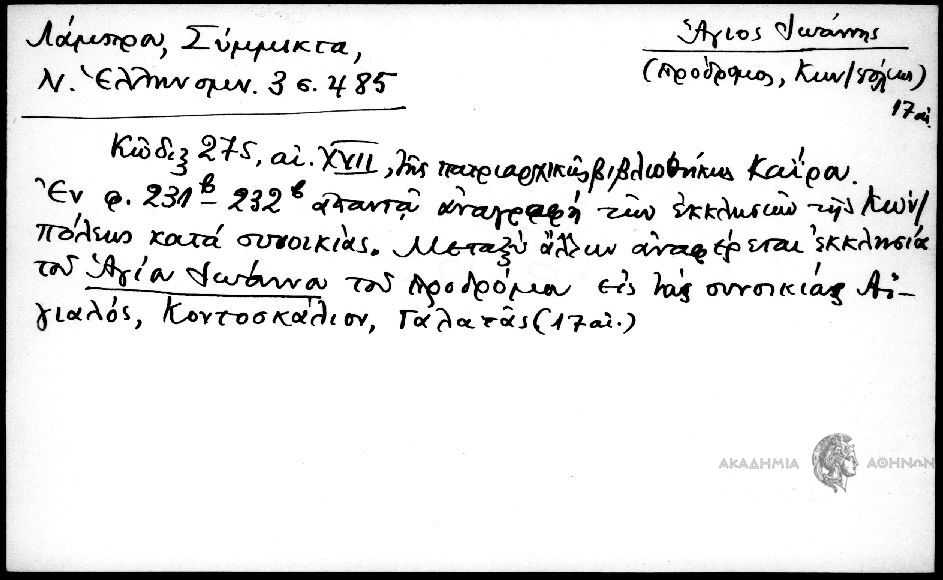 Λάμπρου, Σύμμικτα,
Ν. Ἑλληνομν. 3 σ. 485
Ἅγιος Ἰωάννης
(Πρόδρομος, Κων/πόλεως)
17 αἰ.
Κῶδιξ 275, αἰ. XVII, τῆς πατριαρχικῆς βιβλιοθήκης Καΐρου.
Ἐν φ. 231β – 232β ἀπαντᾷ ἀναγραφή τῶν ἐκκλησιῶν τῆς Κων/
πόλεως κατά συνοικίας. Μεταξύ ἄλλων ἀναφέρεται ἐκκλησία
τοῦ Ἁγίου Ἰωάννου τοῦ Προδρόμου εἰς τάς συνοικίας Αἰ-
γιαλός, Κοντοσκάλιον, Γαλατᾶς (17 αἰ.)
ΑΚΑΔΗΜΙΑ ΑΘΗΝΩΝ